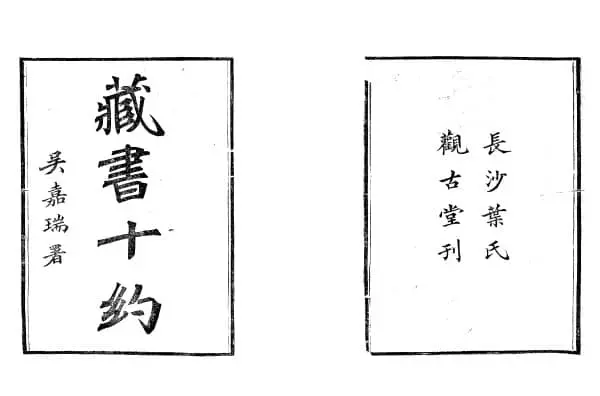 藏書十約
吳嘉瑞署
長沙葉氏
觀古堂刊